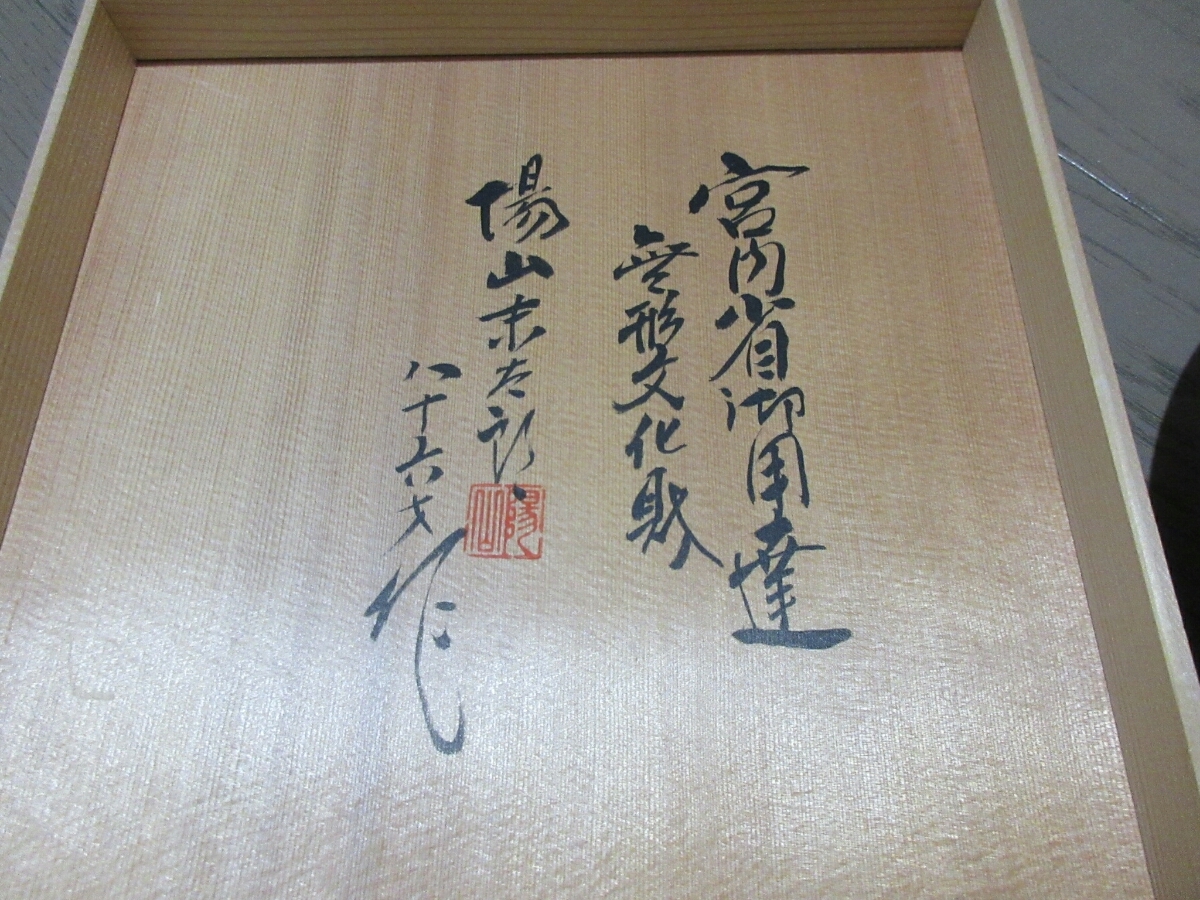 宮内省御用達
無形文化財
陽山末太郎
八十六才作
陽山